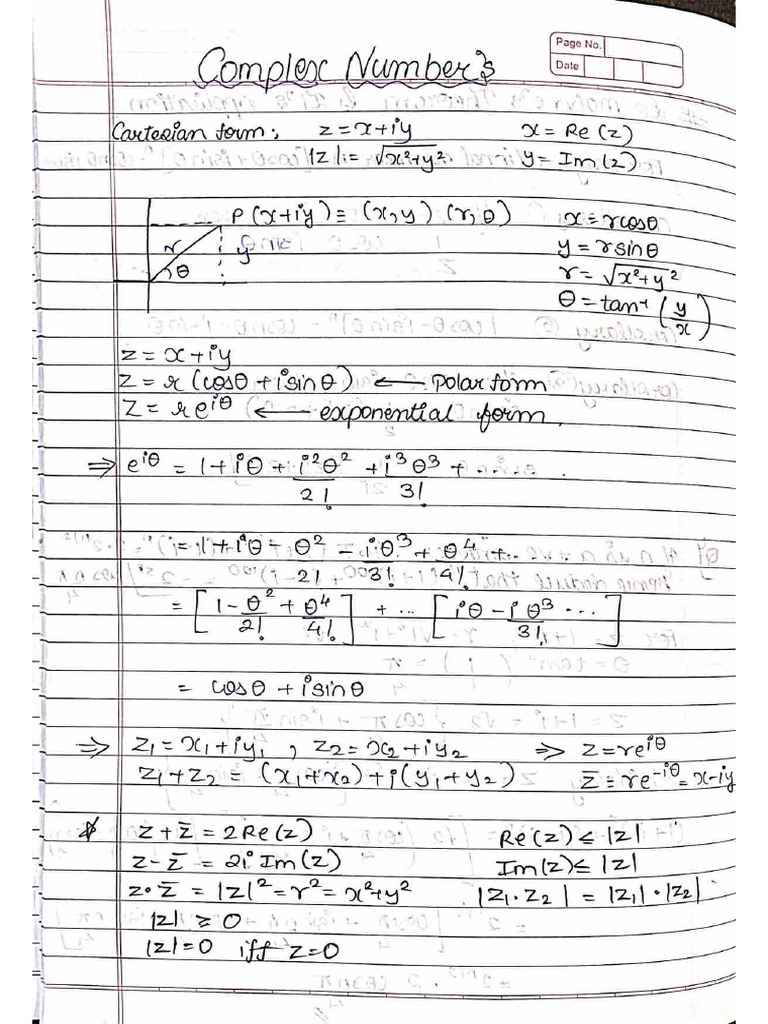 Page No.
Date
Complex Number's
Cartesian form: z = x+iy x = Re(z)
|z| = √x²+y² y = Im(z)
P(x+iy) ≡ (x,y) (r,θ) x = rcosθ
r y y = rsinθ
θ r = √x²+y²
θ = tan⁻¹(y/x)
z = x+iy
z = r(cosθ + isinθ) ← polar form
z = re^iθ ← exponential form.
⇒ e^iθ = 1 + iθ + i²θ²/2! + i³θ³/3! + .....
= 1 + iθ - θ²/2! - iθ³/3! + θ⁴/4! + ...
= [1 - θ²/2! + θ⁴/4!] + ... [iθ - iθ³/3! ...]
= cosθ + isinθ
⇒ z₁ = x₁+iy₁, z₂ = x₂+iy₂ ⇒ z = re^iθ
z₁+z₂ = (x₁+x₂)+i(y₁+y₂) z̄ = re^-iθ = x-iy
* z + z̄ = 2Re(z) Re(z) ≤ |z|
z - z̄ = 2i Im(z) Im(z) ≤ |z|
z·z̄ = |z|² = r² = x²+y² |z₁·z₂| = |z₁|·|z₂|
|z| ≥ 0
|z| = 0 iff z = 0